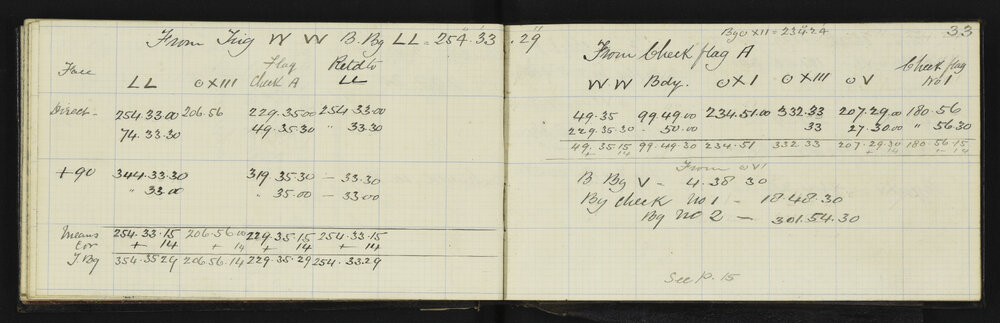 From Trig W W B.Bg LL = 254°.33'.29"
Face
LL O XIII Flag Check A Retd to LL
Direct - 254.33.00 206.56 229.35.00 254.33.00
74.33.30 49.35.30 " 33.30
+90 344.33.30 319.35.30 - 33.30
" 33.00 " 35.00 - 33.00
Means 254.33.15 206.56.00 229.35.15 254.33.15
Cor + 14 + 14 + 14 + 14
T.Bg 354.35.29 206.56.14 229.35.29 254.33.29
Bg O XII = 234.24
33
From Check flag A
W W Bdy. O X I O XIII O V Check flag no 1
49.35 99.49.00 234.51.00 332.33 207.29.00 180.56
229.35.30 - 50.00 33 27.30.00 " 56.30
49.35.15 99.49.30 234.51 332.33 207.29.30 180.56.15
+ 14 + 14 + 14
From O VI
B Bg V = 4.38 30
By check no 1 - 18.48.30
Bg no 2 - 301.54.30
See p. 15